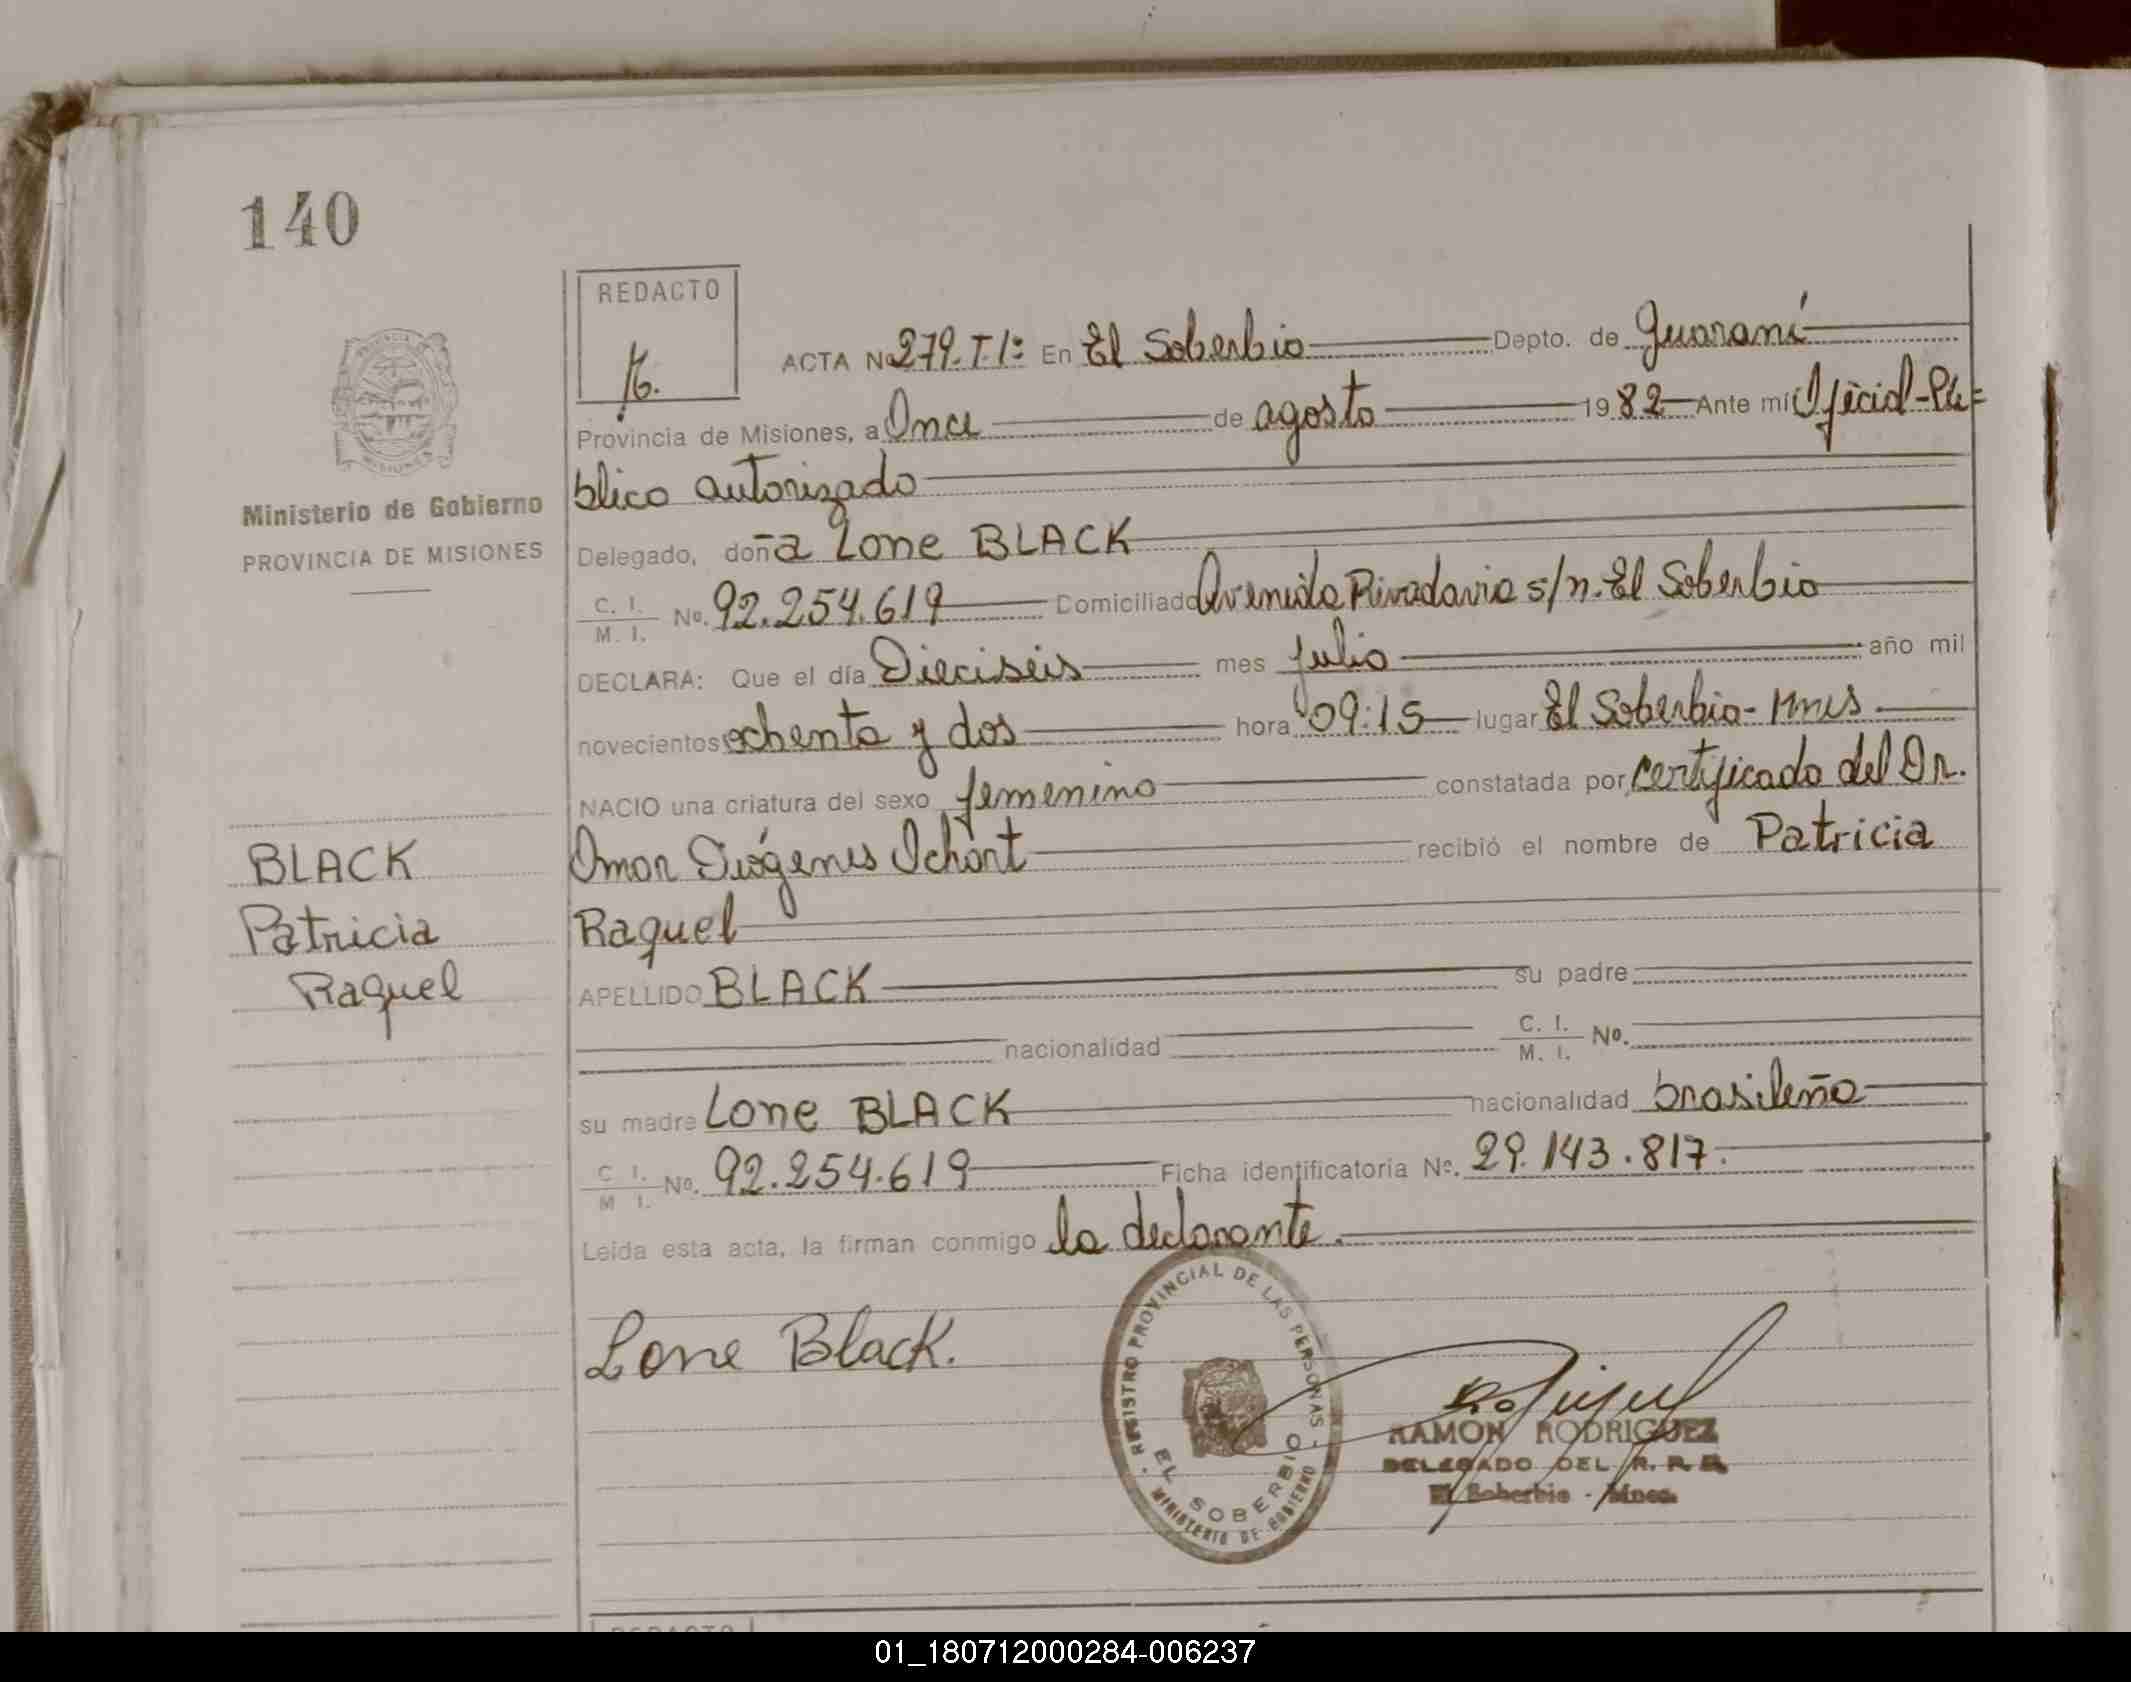 140
REDACTO
ACTA No 279.T.1º En El Soberbio Depto. de Guaraní
Provincia de Misiones, a Once de agosto 1982 Ante mí Oficial-Pú=
blico autorizado
Ministerio de Gobierno
PROVINCIA DE MISIONES
Delegado, doña Lone BLACK
C. I. / M. I. No. 92.254.619 Domiciliado Avenida Rivadavia s/n. El Soberbio
DECLARA: Que el día Dieciseis mes julio año mil
novecientos ochenta y dos hora 09:15 lugar El Soberbio-Mnes
NACIO una criatura del sexo femenino constatada por certificado del Dr.
Omar Diógenes Ichart recibió el nombre de Patricia
Raquel
BLACK
Patricia
Raquel
APELLIDO BLACK su padre
nacionalidad C. I. / M. I. No.
su madre Lone BLACK nacionalidad brasileña
C I. / M I. No. 92.254.619 Ficha identificatoria No. 29.143.817.
Leída esta acta, la firman conmigo la declarante.
Lone Black.
REGISTRO PROVINCIAL DE LAS PERSONAS
EL SOBERBIO
MINISTERIO DE GOBIERNO
RAMON RODRIGUEZ
DELEGADO DEL R. P. P.
El Soberbio - Mnes.
REDACTO
01_180712000284-006237